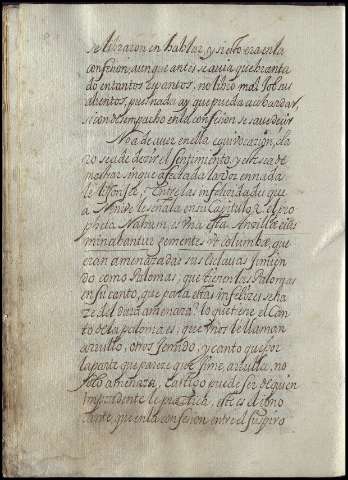 se libraron en hablar, y si esto era en la
confesion, aunque antes se auia quebranta
do en tantos espantos, no libró mas sobrus
alientos, pues nada ay que pueda acobardar,
si con desempacho en la confesion se saue decir
No a de auer en ella equiuocacion, cla
ro se a de decir el sentimiento, y este se a de
mostrar sin que afectada la voz en nada
le ofusce. Entre las infelicidades que
a Niniue le señala en su Capitulo 2. el pro
pheta Nahum, es una esta. Ancillae eius
minabantur gementes ut columbae, que
eran amenazadas sus esclauas gimien
do como Palomas; que tienen las Palomas
en su canto, que para estas infelices se ha
ze del dar a amenaza? lo que tiene el can
to de la paloma es, que vnos le llaman
arrullo, otros gemido, y canto que por
la parte que parece que gime, arrulla, no
solo amenaza, castigo puede ser de quien
imprudente le practica, este es el igno
rante, que en la confesion entre el suspiro